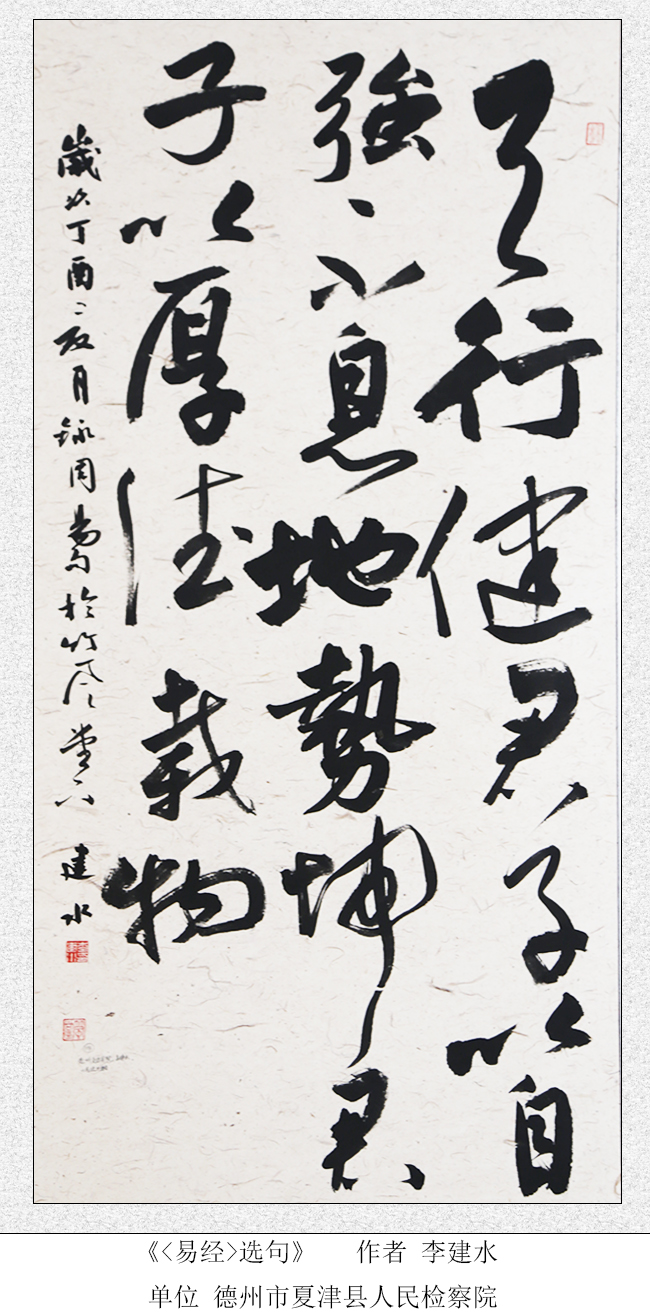 天行健君子以自
強〻不息地勢坤君
子以厚德載物
歲次丁酉月録周易於竹風堂下 建水
《<易经>选句》 作者 李建水
单位 德州市夏津县人民检察院